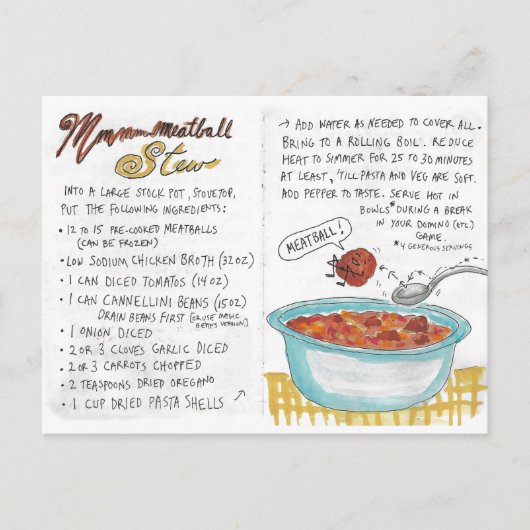 Mmmm...meatball
Stew
INTO A LARGE STOCK POT, STOVETOP,
PUT THE FOLLOWING INGREDIENTS:
• 12 TO 15 PRE-COOKED MEATBALLS
(CAN BE FROZEN)
• LOW SODIUM CHICKEN BROTH (32 OZ)
• 1 CAN DICED TOMATOS (14 OZ)
• 1 CAN CANNELLINI BEANS (15 OZ)
DRAIN BEANS FIRST [OR USE MAGIC
BEANS VERSION]
• 1 ONION DICED
• 2 OR 3 CLOVES GARLIC DICED
• 2 OR 3 CARROTS CHOPPED
• 2 TEASPOONS DRIED OREGANO
• 1 CUP DRIED PASTA SHELLS
→ ADD WATER AS NEEDED TO COVER ALL.
BRING TO A ROLLING BOIL. REDUCE
HEAT TO SIMMER FOR 25 TO 30 MINUTES
AT LEAST, 'TILL PASTA AND VEG ARE SOFT.
ADD PEPPER TO TASTE. SERVE HOT IN
BOWLS* DURING A BREAK
IN YOUR DOMINO (ETC.)
GAME.
*4 GENEROUS SERVINGS
MEATBALL!